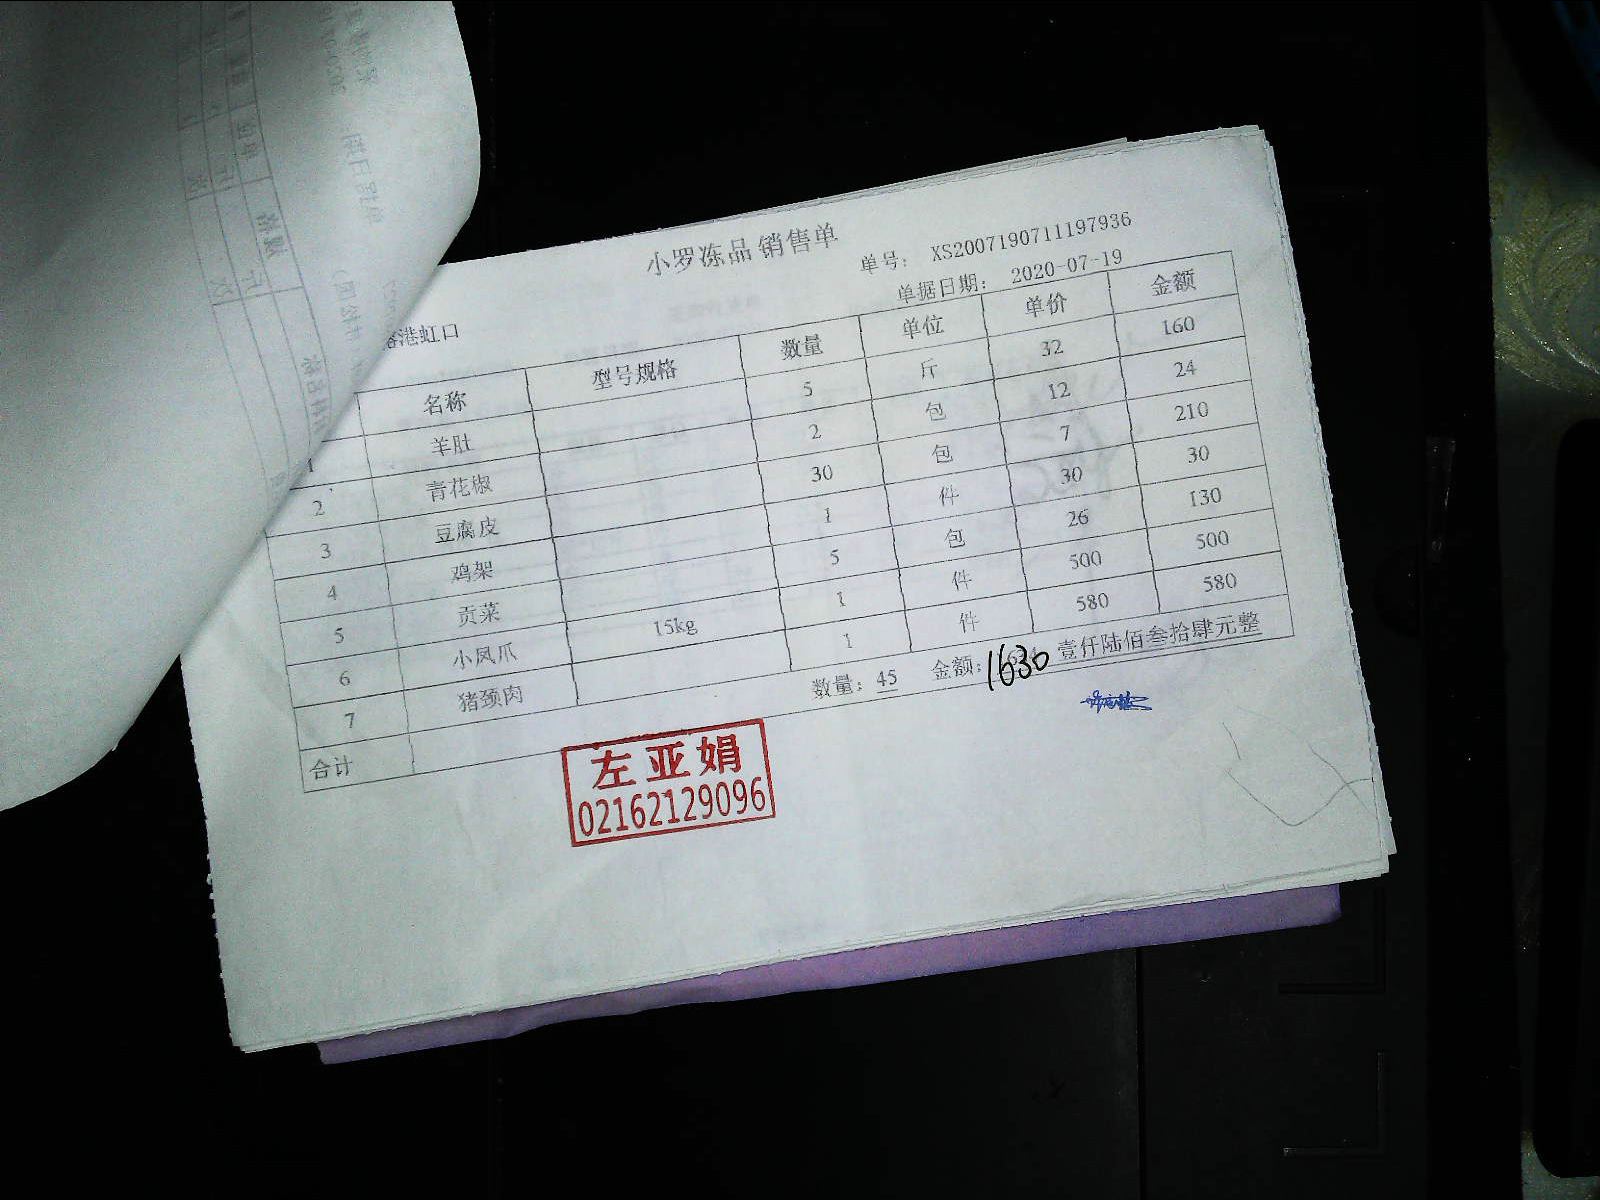 小罗冻品 销售单
单号: XS2007190711197936
港虹口 单据日期: 2020-07-19
名称 型号规格 数量 单位 单价 金额
1 羊肚 5 斤 32 160
2 青花椒 2 包 12 24
3 豆腐皮 30 包 7 210
4 鸡架 1 件 30 30
5 贡菜 5 包 26 130
6 小凤爪 15kg 1 件 500 500
7 猪颈肉 1 件 580 580
合计 数量: 45 金额: 1630 壹仟陆佰叁拾肆元整
左亚娟
02162129096